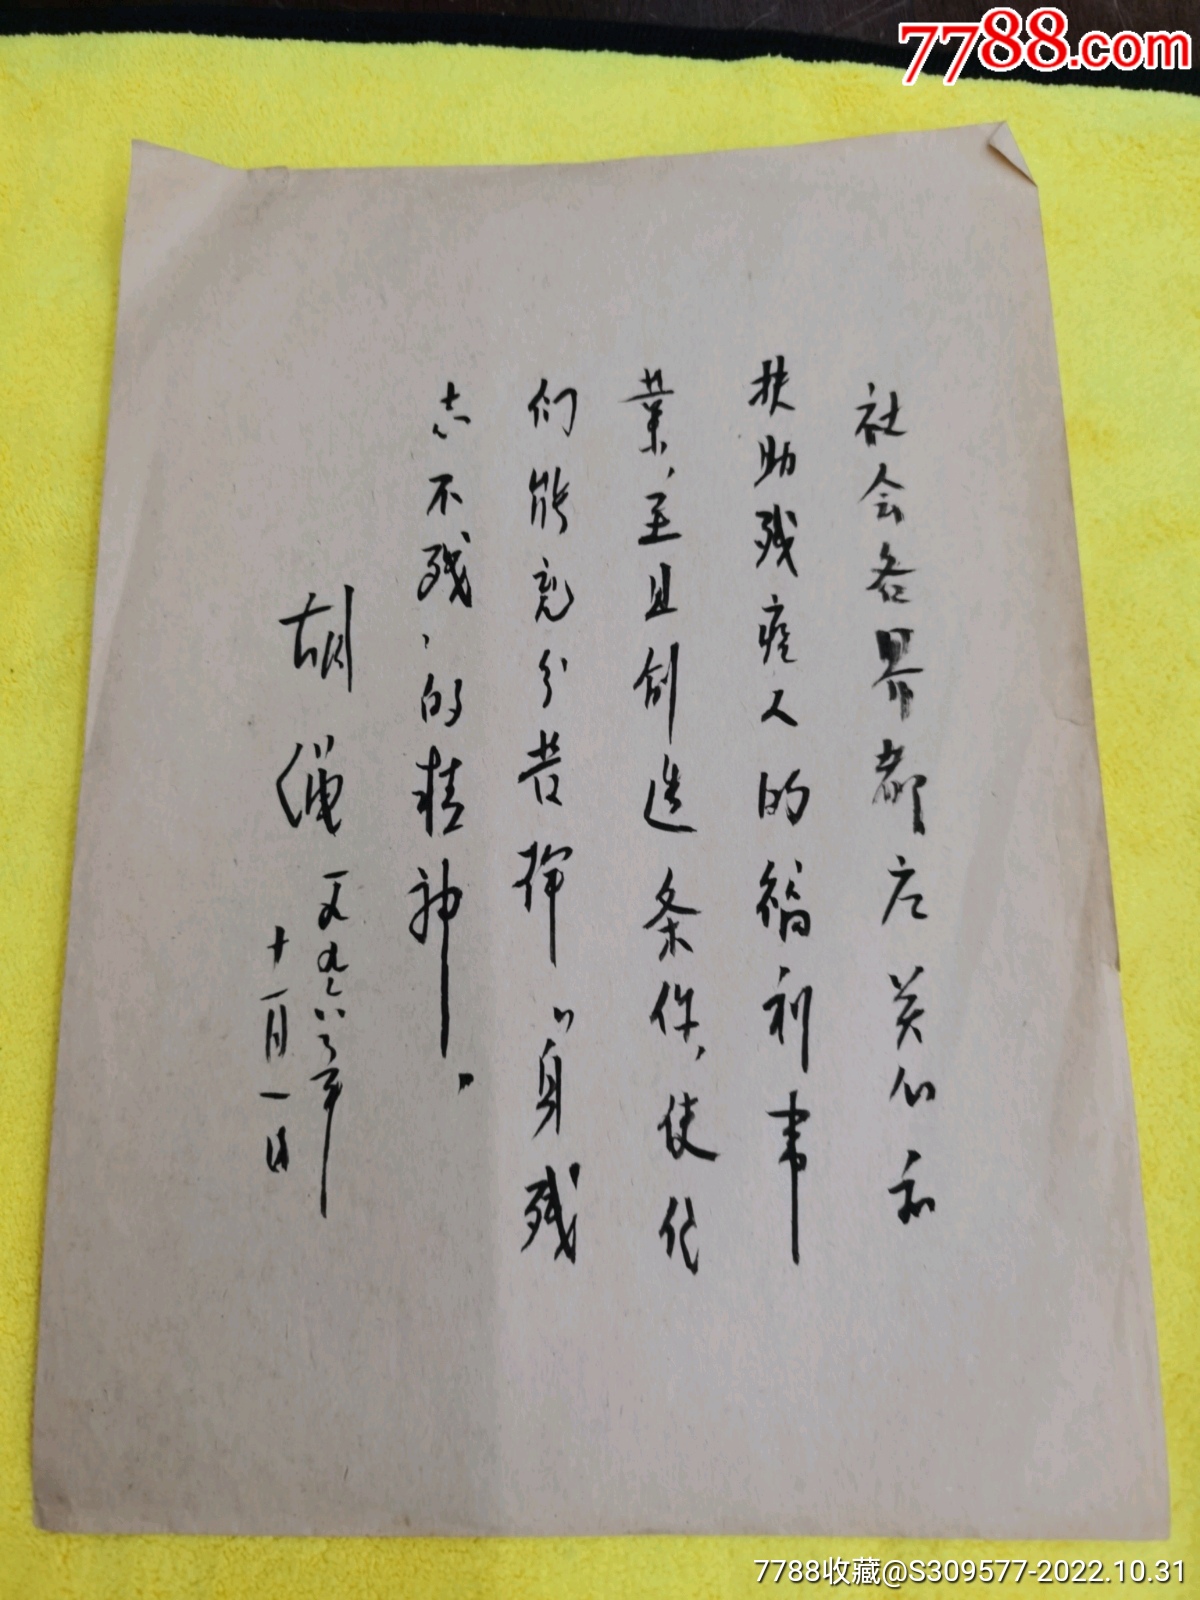 7788.com
社会各界都应关心和
扶助残疾人的福利事
業，並且创造条件，使他
们能充分发挥“身残
志不残”的精神。
胡绳 一九九六年
十一月一日
7788收藏@S309577-2022.10.31